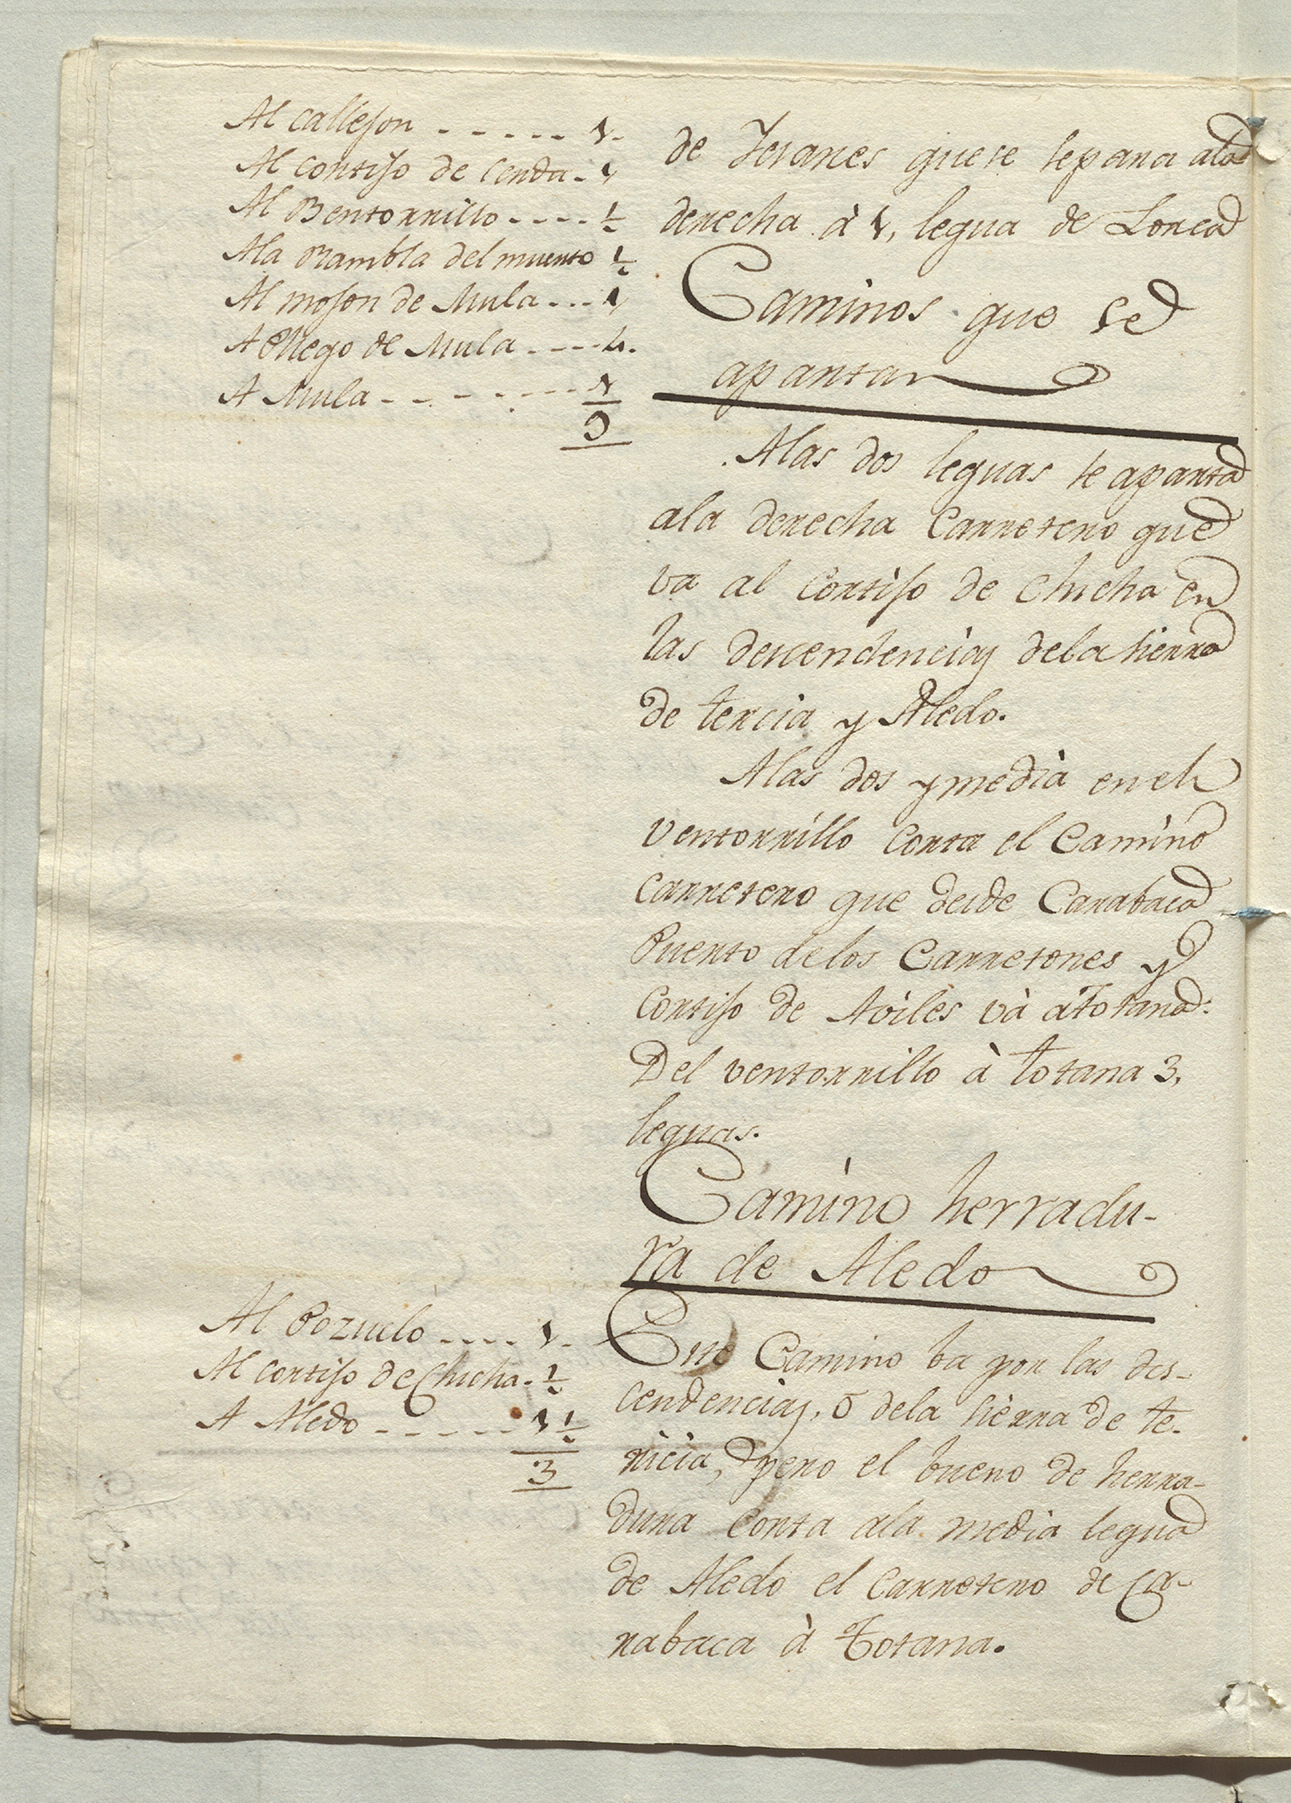 Al callejon ----- 1.
Al cortijo de Cerda - 1
Al Bentorrillo ---- ½
Ala Rambla del muerto ½
Al mojon de Mula --- 1
A Pliego de Mula ---- 4.
A Mula - - - - - - - 1
9
de que se separa ala
derecha à 1, legua de Lorca
Caminos que se
apartan
Alas dos leguas se aparta
ala derecha Carretero que
va al Cortijo de Chicha en
las descendencias dela sierra
de tercia y Aledo.
Alas dos y medià en el
ventorrillo corta el Camino
Carretero que desde Carabaca
Puerto delos Carretones y
Cortijo de Avilès và à Totana:
Del ventorrillo à totana 3,
leguas.
Camino herradu-
ra de Aledo
Al Pozuelo ---- 1.
Al cortijo de Chicha - ½
A Aledo ------ 1 ½
3
Este Camino ba por las des-
cendencias, ò dela sierra de te-
rcia, pero el bueno de herra-
dura corta ala media legua
de Aledo el Carretero de Ca-
rabaca à Totana.